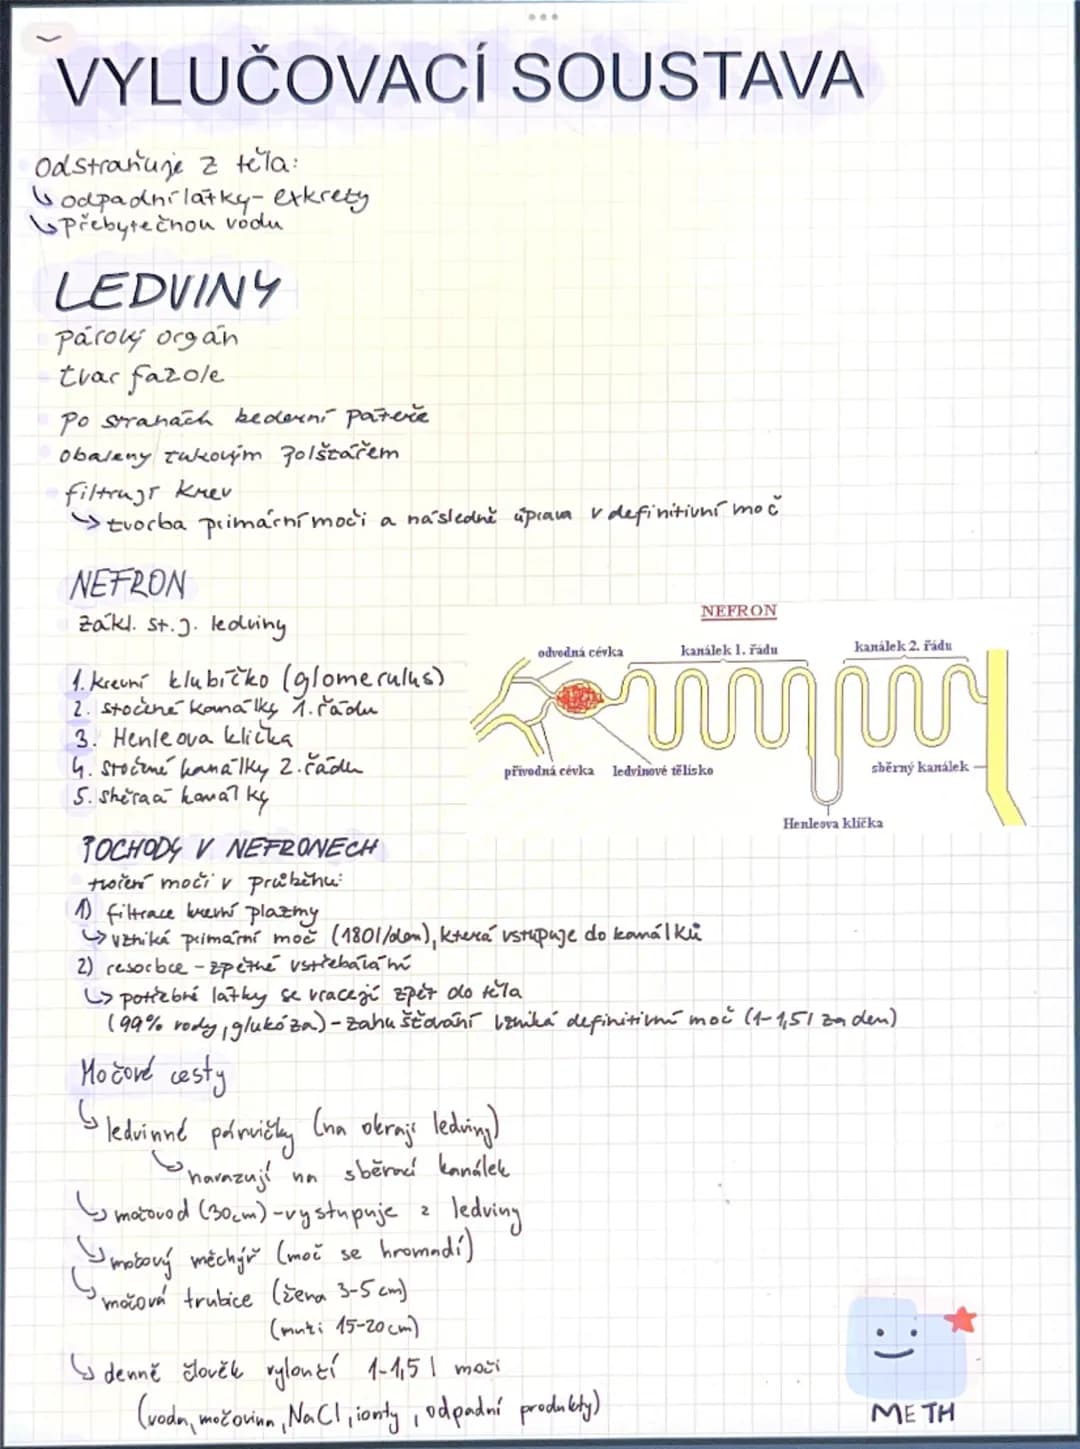 VYLUČOVACÍ SOUSTAVA
Odstraňuje z těla:
↳ odpadní látky - exkrety
↳ Přebytečnou vodu
LEDVINY
párový orgán
tvar fazole
Po stranách bederní páteře
obaleny tukovým polštářem
filtrují krev
↳ tvorba primární moči a následně úprava v definitivní moč
NEFRON
zákl. st. j. ledviny
1. krevní klubíčko (glomerulus)
2. stočené kanálky 1. řádu
3. Henleova klička
4. stočené kanálky 2. řádu
5. sběrací kanálky
NEFRON
odvodná cévka
kanálek 1. řádu
kanálek 2. řádu
přívodná cévka
ledvinové tělísko
sběrný kanálek
Henleova klička
POCHODY V NEFRONECH
tvoření moči v průběhu:
1) filtrace krevní plazmy
↳ vzniká primární moč (180l/den), která vstupuje do kanálků
2) resorbce - zpětné vstřebávání
↳ potřebné látky se vracejí zpět do těla
(99% vody, glukóza) - zahušťování vzniká definitivní moč (1-1,5l za den)
Močové cesty
↳ ledvinné pánvičky (na okraji ledviny)
↳ navazují na sběrací kanálek
↳ močovod (30cm) - vystupuje z ledviny
↳ močový měchýř (moč se hromadí)
↳ močová trubice (žena 3-5 cm)
(muži 15-20 cm)
↳ denně člověk vyloučí 1-1,5 l moči
(voda, močovina, NaCl, ionty, odpadní produkty)
METH